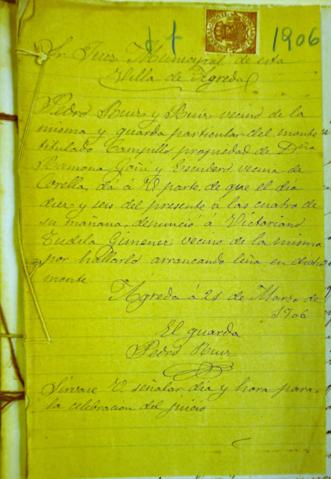 1906
Sr. Juez Municipal de esta
Villa de Agreda
Pedro Ruiz y Ruiz vecino de la
misma y guarda particular del monte
titulado Campillo propiedad de Dña
Ramona Goñi y Escudero vecina de
Corella, da á V. parte de que el dia
diez y seis del presente á las cuatro de
su mañana, denunció á Victoriano
Tudela Gimenez vecino de la misma
por hallarlo arrancando leña en dicho
monte
Agreda á 21 de Marzo de
1906
El guarda
Pedro Ruiz
Sirvase V. señalar dia y hora para
la celebracion del juicio